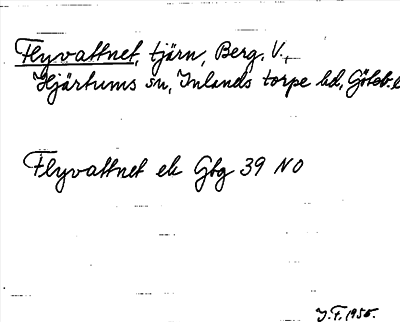 Flyvattnet, tjärn, Berg, V.,
Hjärtums sn, Inlands torpe hd, Göteb.
Flyvattnet ek Gbg 39 NO
J.F. 1950.